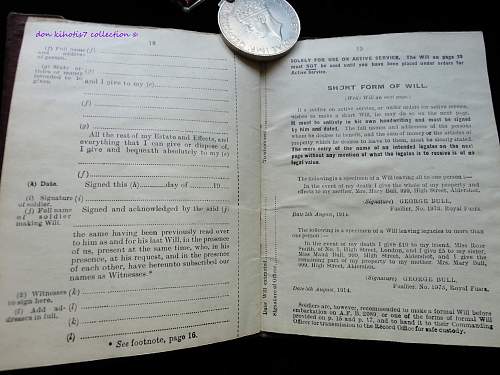 don kihotis7 collection ©
18
(f) Full name (f)
and address
of person.
and I give to my (e)
(f)
(g)
All the rest of my Estate and Effects, and
everything that I can give or dispose of,
I give and bequeath absolutely to my (e)
(f)
(h) Date.
Signed this (h) day of 19
(i) Signature (i)
of soldier.
(j) Full name
of soldier
making Will.
Signed and acknowledged by the said (j)
the same having been previously read over
to him as and for his last Will, in the presence
of us, present at the same time, who, in his
presence, at his request, and in the presence
of each other, have hereunto subscribed our
names as Witnesses.*
(k) Witnesses (k)
to sign here.
(l) Add ad- (l)
dresses in full.
(k)
(l)
* See footnote, page 16.
19
SOLELY FOR USE ON ACTIVE SERVICE. The Will on page
must NOT be used until you have been placed under orders for
Active Service.
SHORT FORM OF WILL.
(Write Will on next page.)
If a soldier on active service, or under orders for active service,
wishes to make a short Will, he may do so on the next page.
It must be entirely in his own handwriting and must be signed
by him and dated. The full names and addresses of the persons
whom he desires to benefit, and the sum of money or the articles of
property which he desires to leave to them, must be clearly stated.
The mere entry of the name of an intended legatee on the next
page without any mention of what the legatee is to receive is of no
legal value.
The following is a specimen of a Will leaving all to one person :—
In the event of my death I give the whole of my property and
effects to my mother, Mrs. Mary Bull, 999, High Street, Aldershot.
(Signature) GEORGE BULL,
Fusilier, No. 1973, Royal Fusrs.
Date 5th August, 1914.
The following is a specimen of a Will leaving legacies to more
than one person :—
In the event of my death I give £10 to my friend, Miss Rose
Smith, of No. 1, High Street, London, and I give £5 to my sister,
Miss Maud Bull, 999, High Street, Aldershot, and I give the
remaining part of my property to my mother, Mrs. Mary Bull,
999, High Street, Aldershot.
(Signature) GEORGE BULL,
Fusilier, No. 1973, Royal Fusrs.
Date 5th August, 1914.
Soldiers are, however, recommended to make a formal Will before
embarkation on A.F. B. 2089, or one of the forms of formal Will
provided on p. 15 and p. 17, and to hand it to their Commanding
Officer for transmission to the Record Office for safe custody.